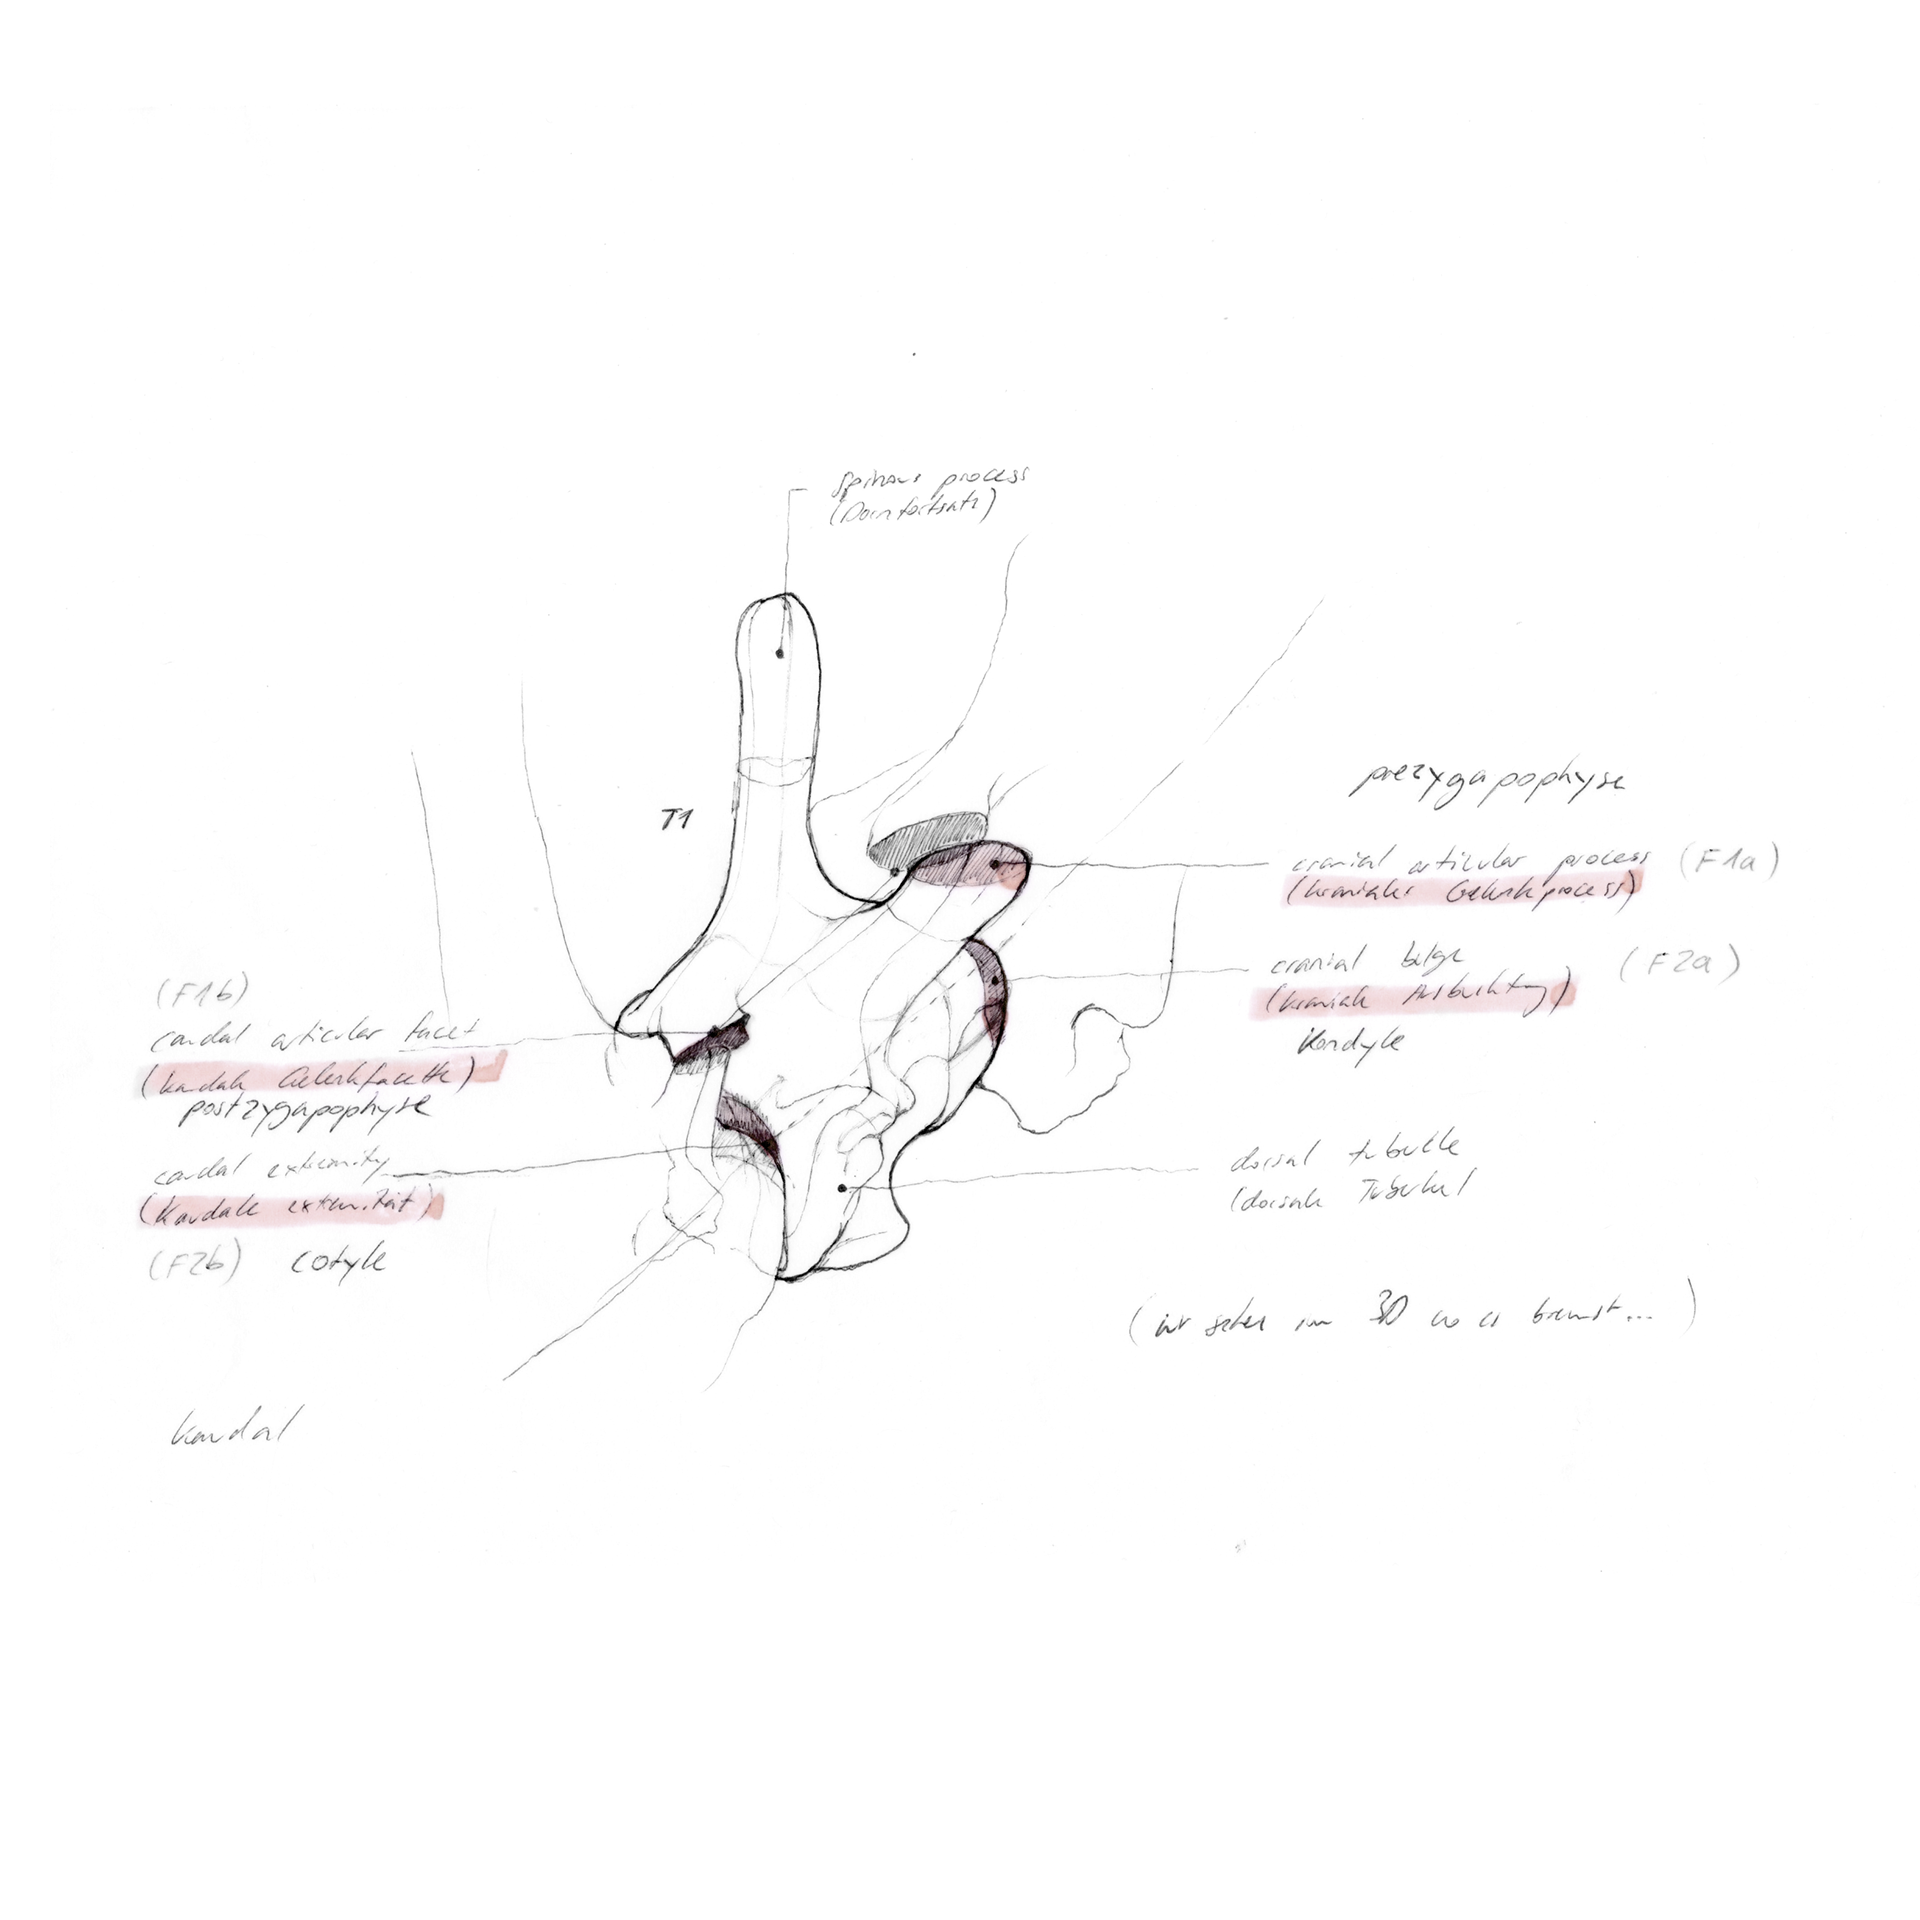 spinous process
(Dornfortsatz)
T1
prezygapophyse
cranial articular process (F1a)
(kranialer Gelenkprocess)
cranial bulge (F2a)
(kraniale Ausbuchtung)
Kondyle
(F1b)
caudal articular facet
(kaudale Gelenkfacette)
postzygapophyse
caudal extremity
(kaudale extremität)
(F2b) cotyle
dorsal tubercle
(dorsale Tuberkel
(wir sehen im 3D wo es bremst...)
kaudal